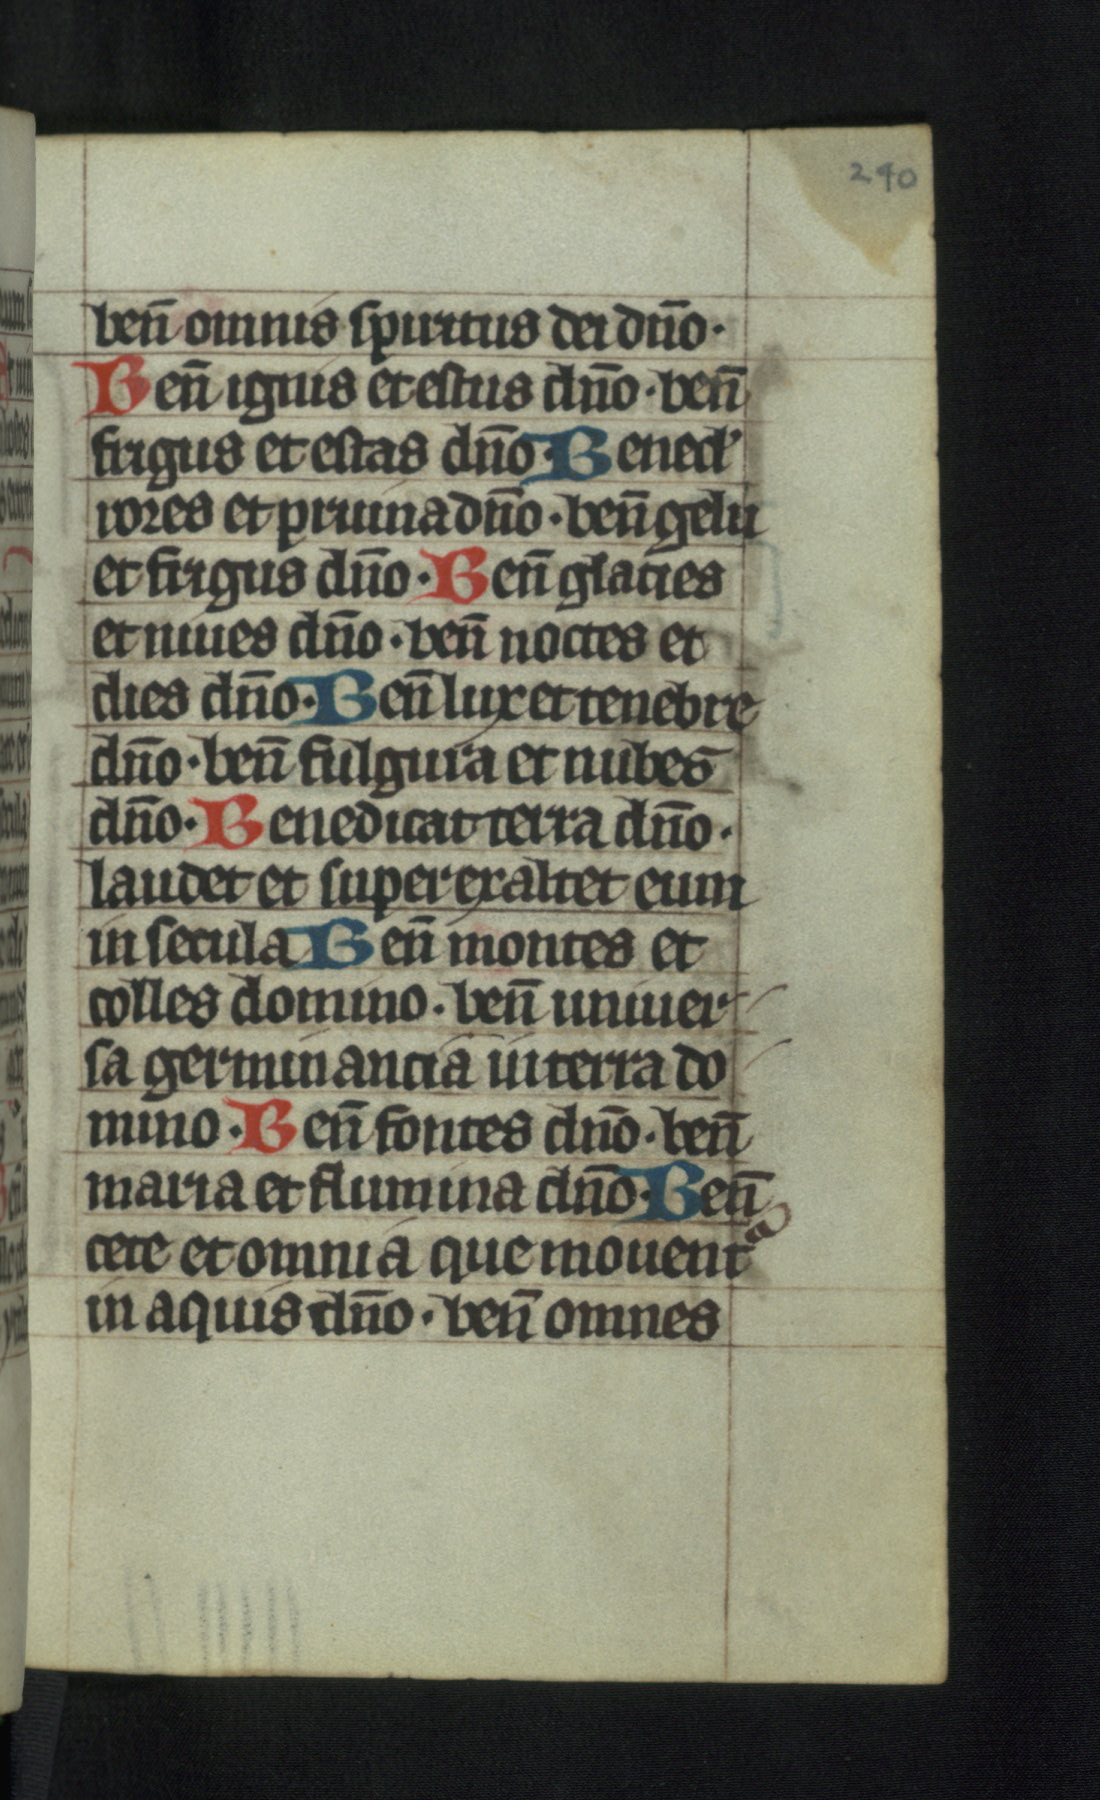 240
ben̄ omnis spiritus dei dn̄o·
Ben̄ ignis et estus dn̄o · ben̄
frigus et estas dn̄o· Bened'
rores et pruina dn̄o · ben̄ gelu
et frigus dn̄o · Ben̄ glacies
et niues dn̄o · ben̄ noctes et
dies dn̄o· Ben̄ lux et tenebre
dn̄o · ben̄ fulgura et nubes
dn̄o· Benedicat terra dn̄o·
laudet et superexaltet eum
in secula Ben̄ montes et
colles domino · ben̄ uniuer
sa germinancia in terra do
mino · Ben̄ fontes dn̄o · ben̄
maria et flumina dn̄o· Ben̄
cete et omnia que mouent᷑
in aquis dn̄o · ben̄ omnes